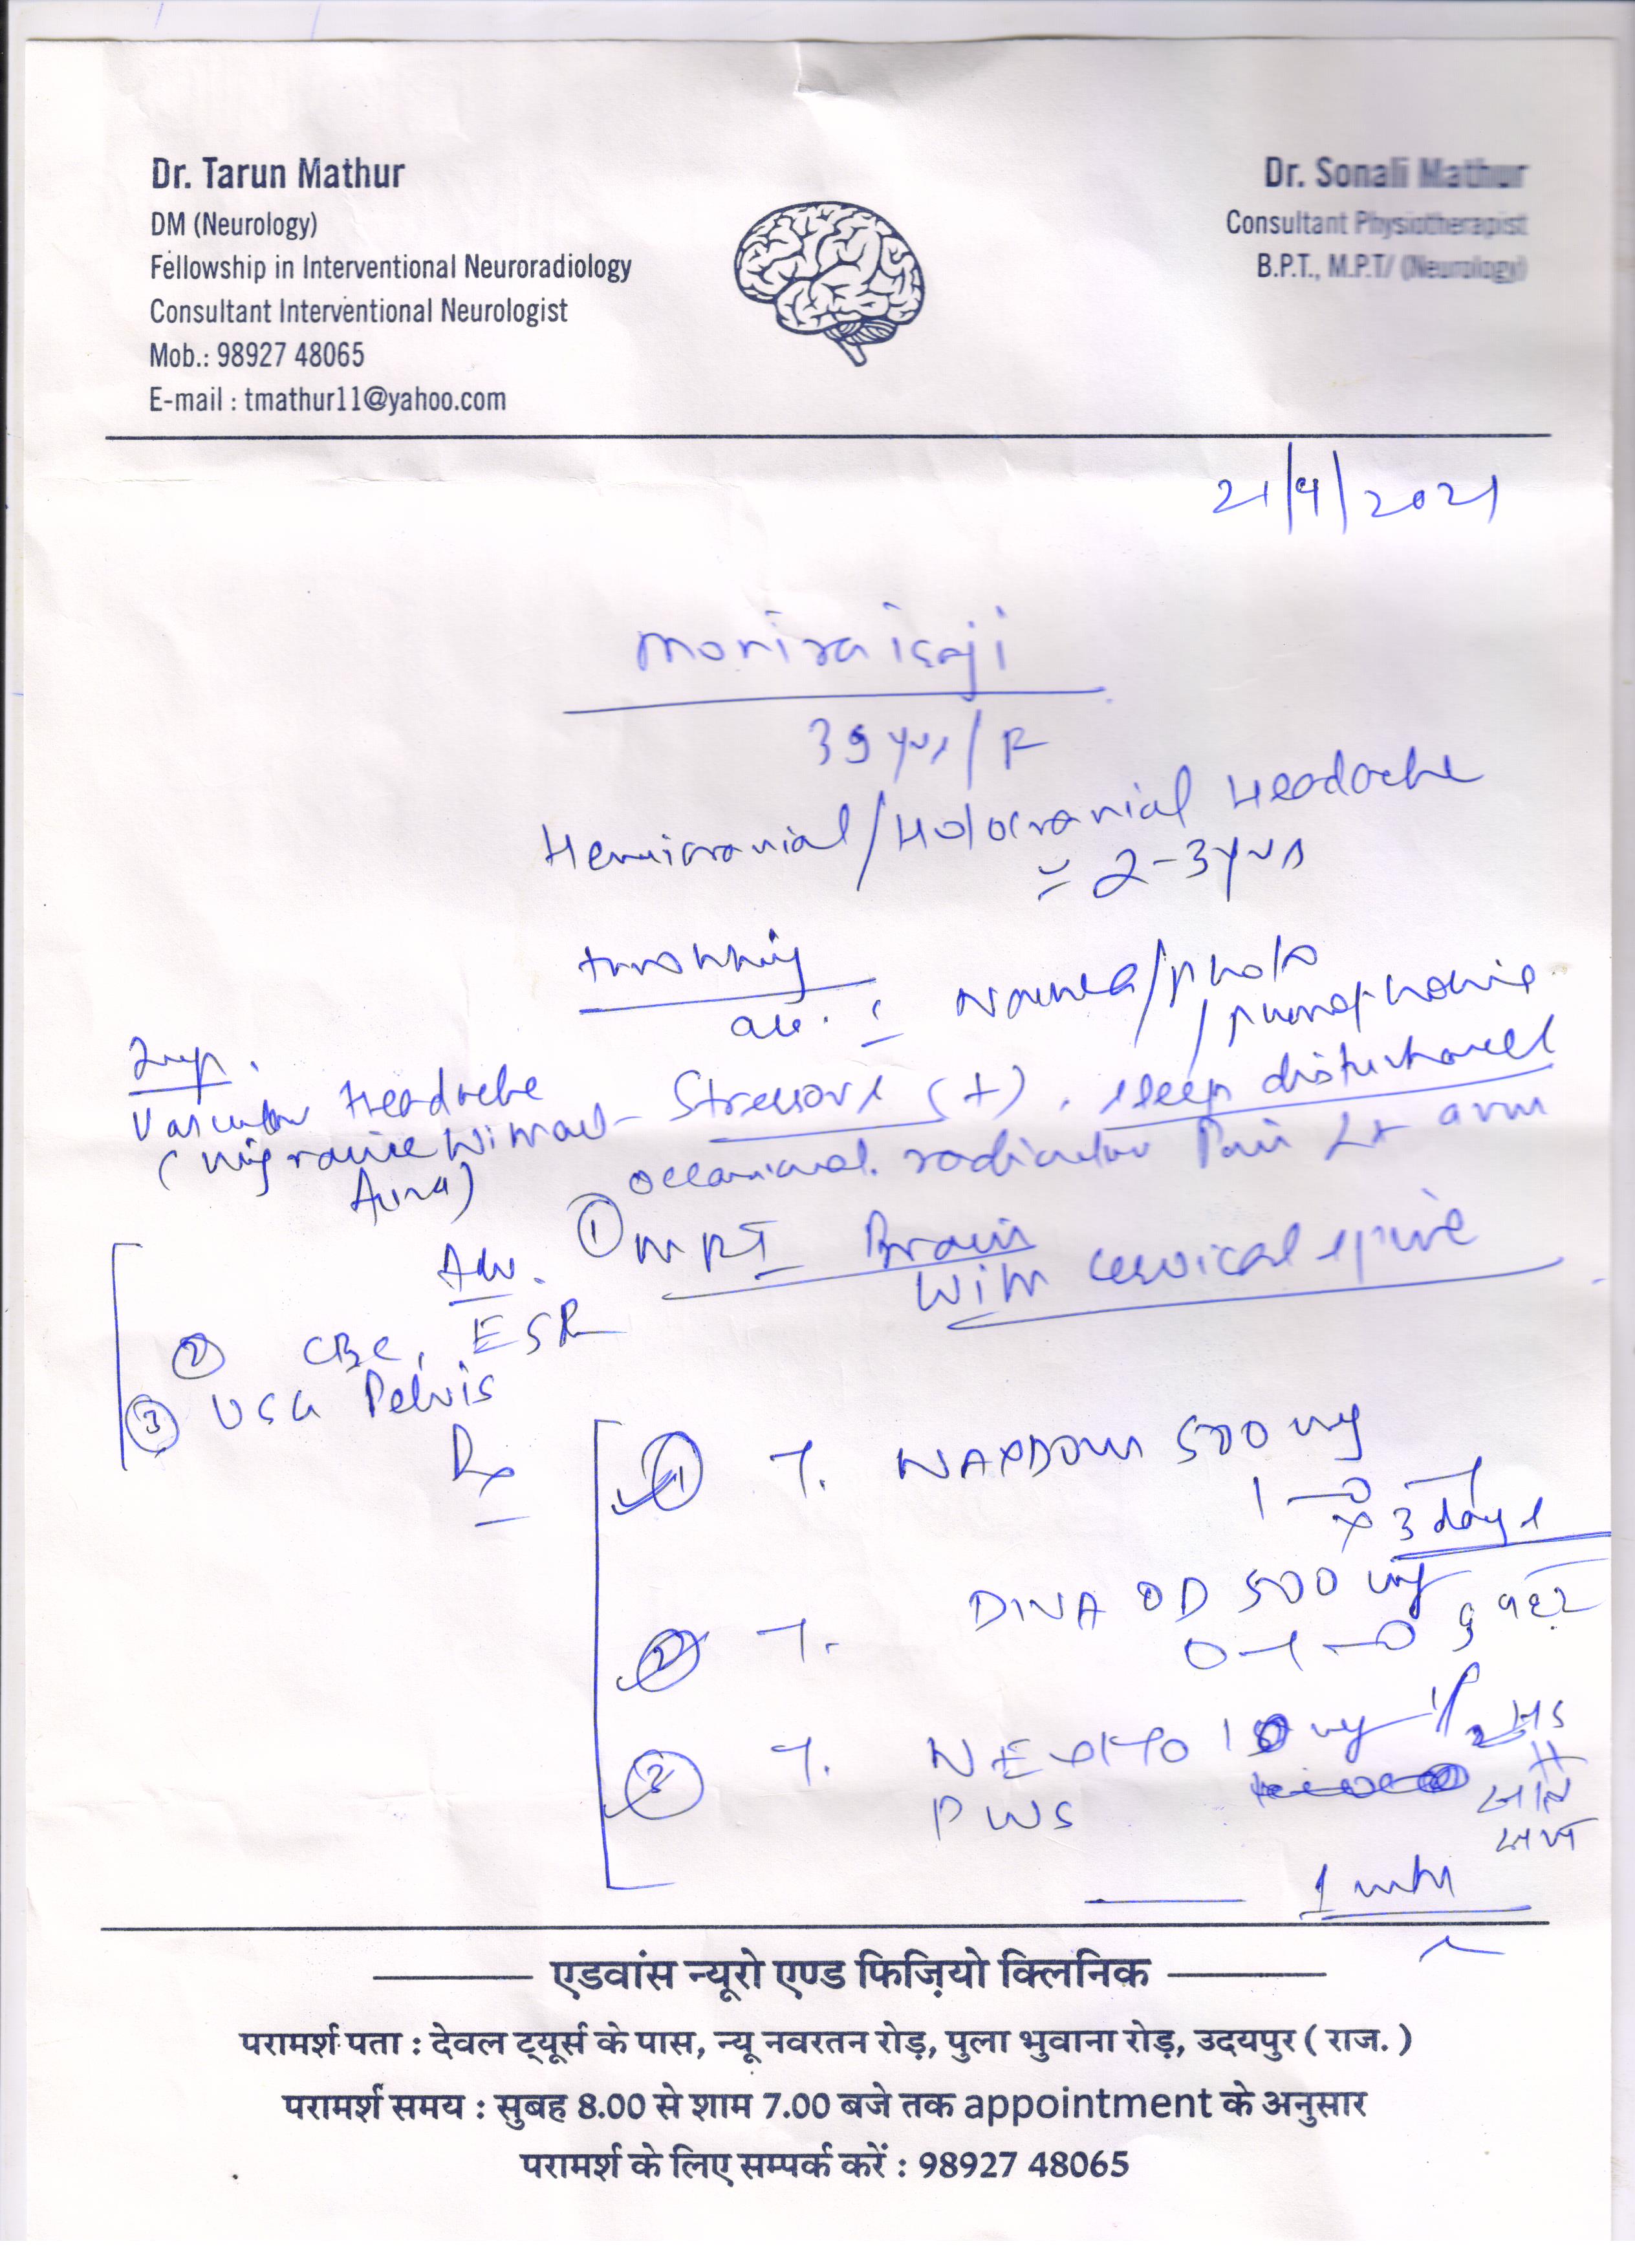 Dr. Tarun Mathur
DM (Neurology)
Fellowship in Interventional Neuroradiology
Consultant Interventional Neurologist
Mob.: 98927 48065
E-mail : tmathur11@yahoo.com
Dr. Sonali Mathur
Consultant Physiotherapist
B.P.T., M.P.T/ (Neurology)
21/4/2021
39 yrs/F
Hemicranial/Holocranial Headache
2-3 yrs
throbbing
Nausea/photo
/phonophobia
Imp.
Vascular Headache
(Migraine Without
Aura)
Stressors (+), sleep disturbances
occasional radicular Pain Lt arm
Adv. ① MRI Brain
With cervical spine
② CBC, ESR
③ USG Pelvis
Rx
① T. NAXDOM 500 mg
x 3 days
② T. DIVA OD 500 mg
0-1-0
③ T. NEXITO 10 mg 1/2 HS
PLUS
1 mth
एडवांस न्यूरो एण्ड फिज़ियो क्लिनिक
परामर्श पता : देवल ट्यूर्स के पास, न्यू नवरतन रोड़, पुला भुवाना रोड़, उदयपुर ( राज. )
परामर्श समय : सुबह 8.00 से शाम 7.00 बजे तक appointment के अनुसार
परामर्श के लिए सम्पर्क करें : 98927 48065